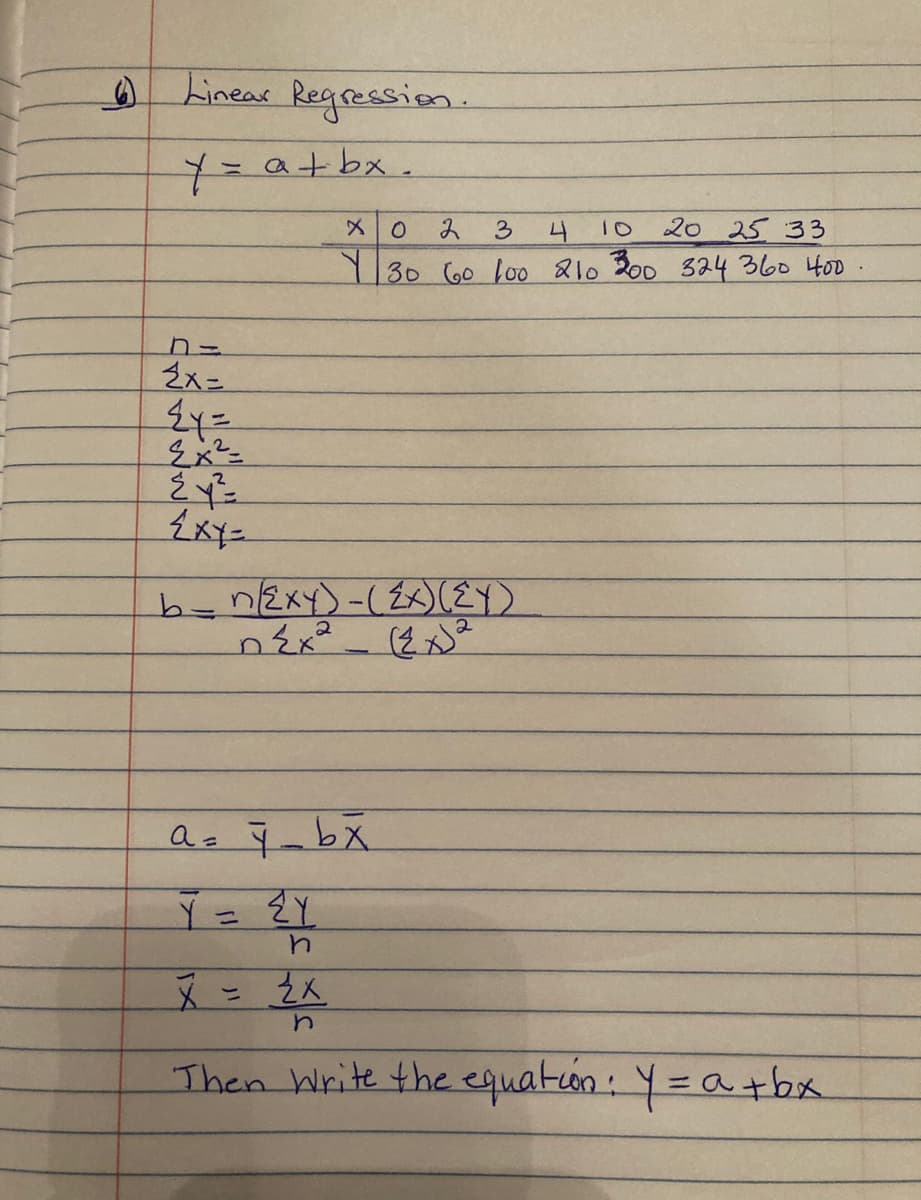 6) Linear Regression.
y = a + bx.
X | 0 2 3 4 10 20 25 33
Y | 30 60 100 210 300 324 360 400.
n =
Σx =
Σy =
Σx² =
Σy² =
Σxy =
b = n(Σxy) - (Σx)(Σy)
nΣx² - (Σx)²
a = ȳ - bx̄
ȳ = Σy
n
x̄ = Σx
n
Then Write the equation: y = a + bx